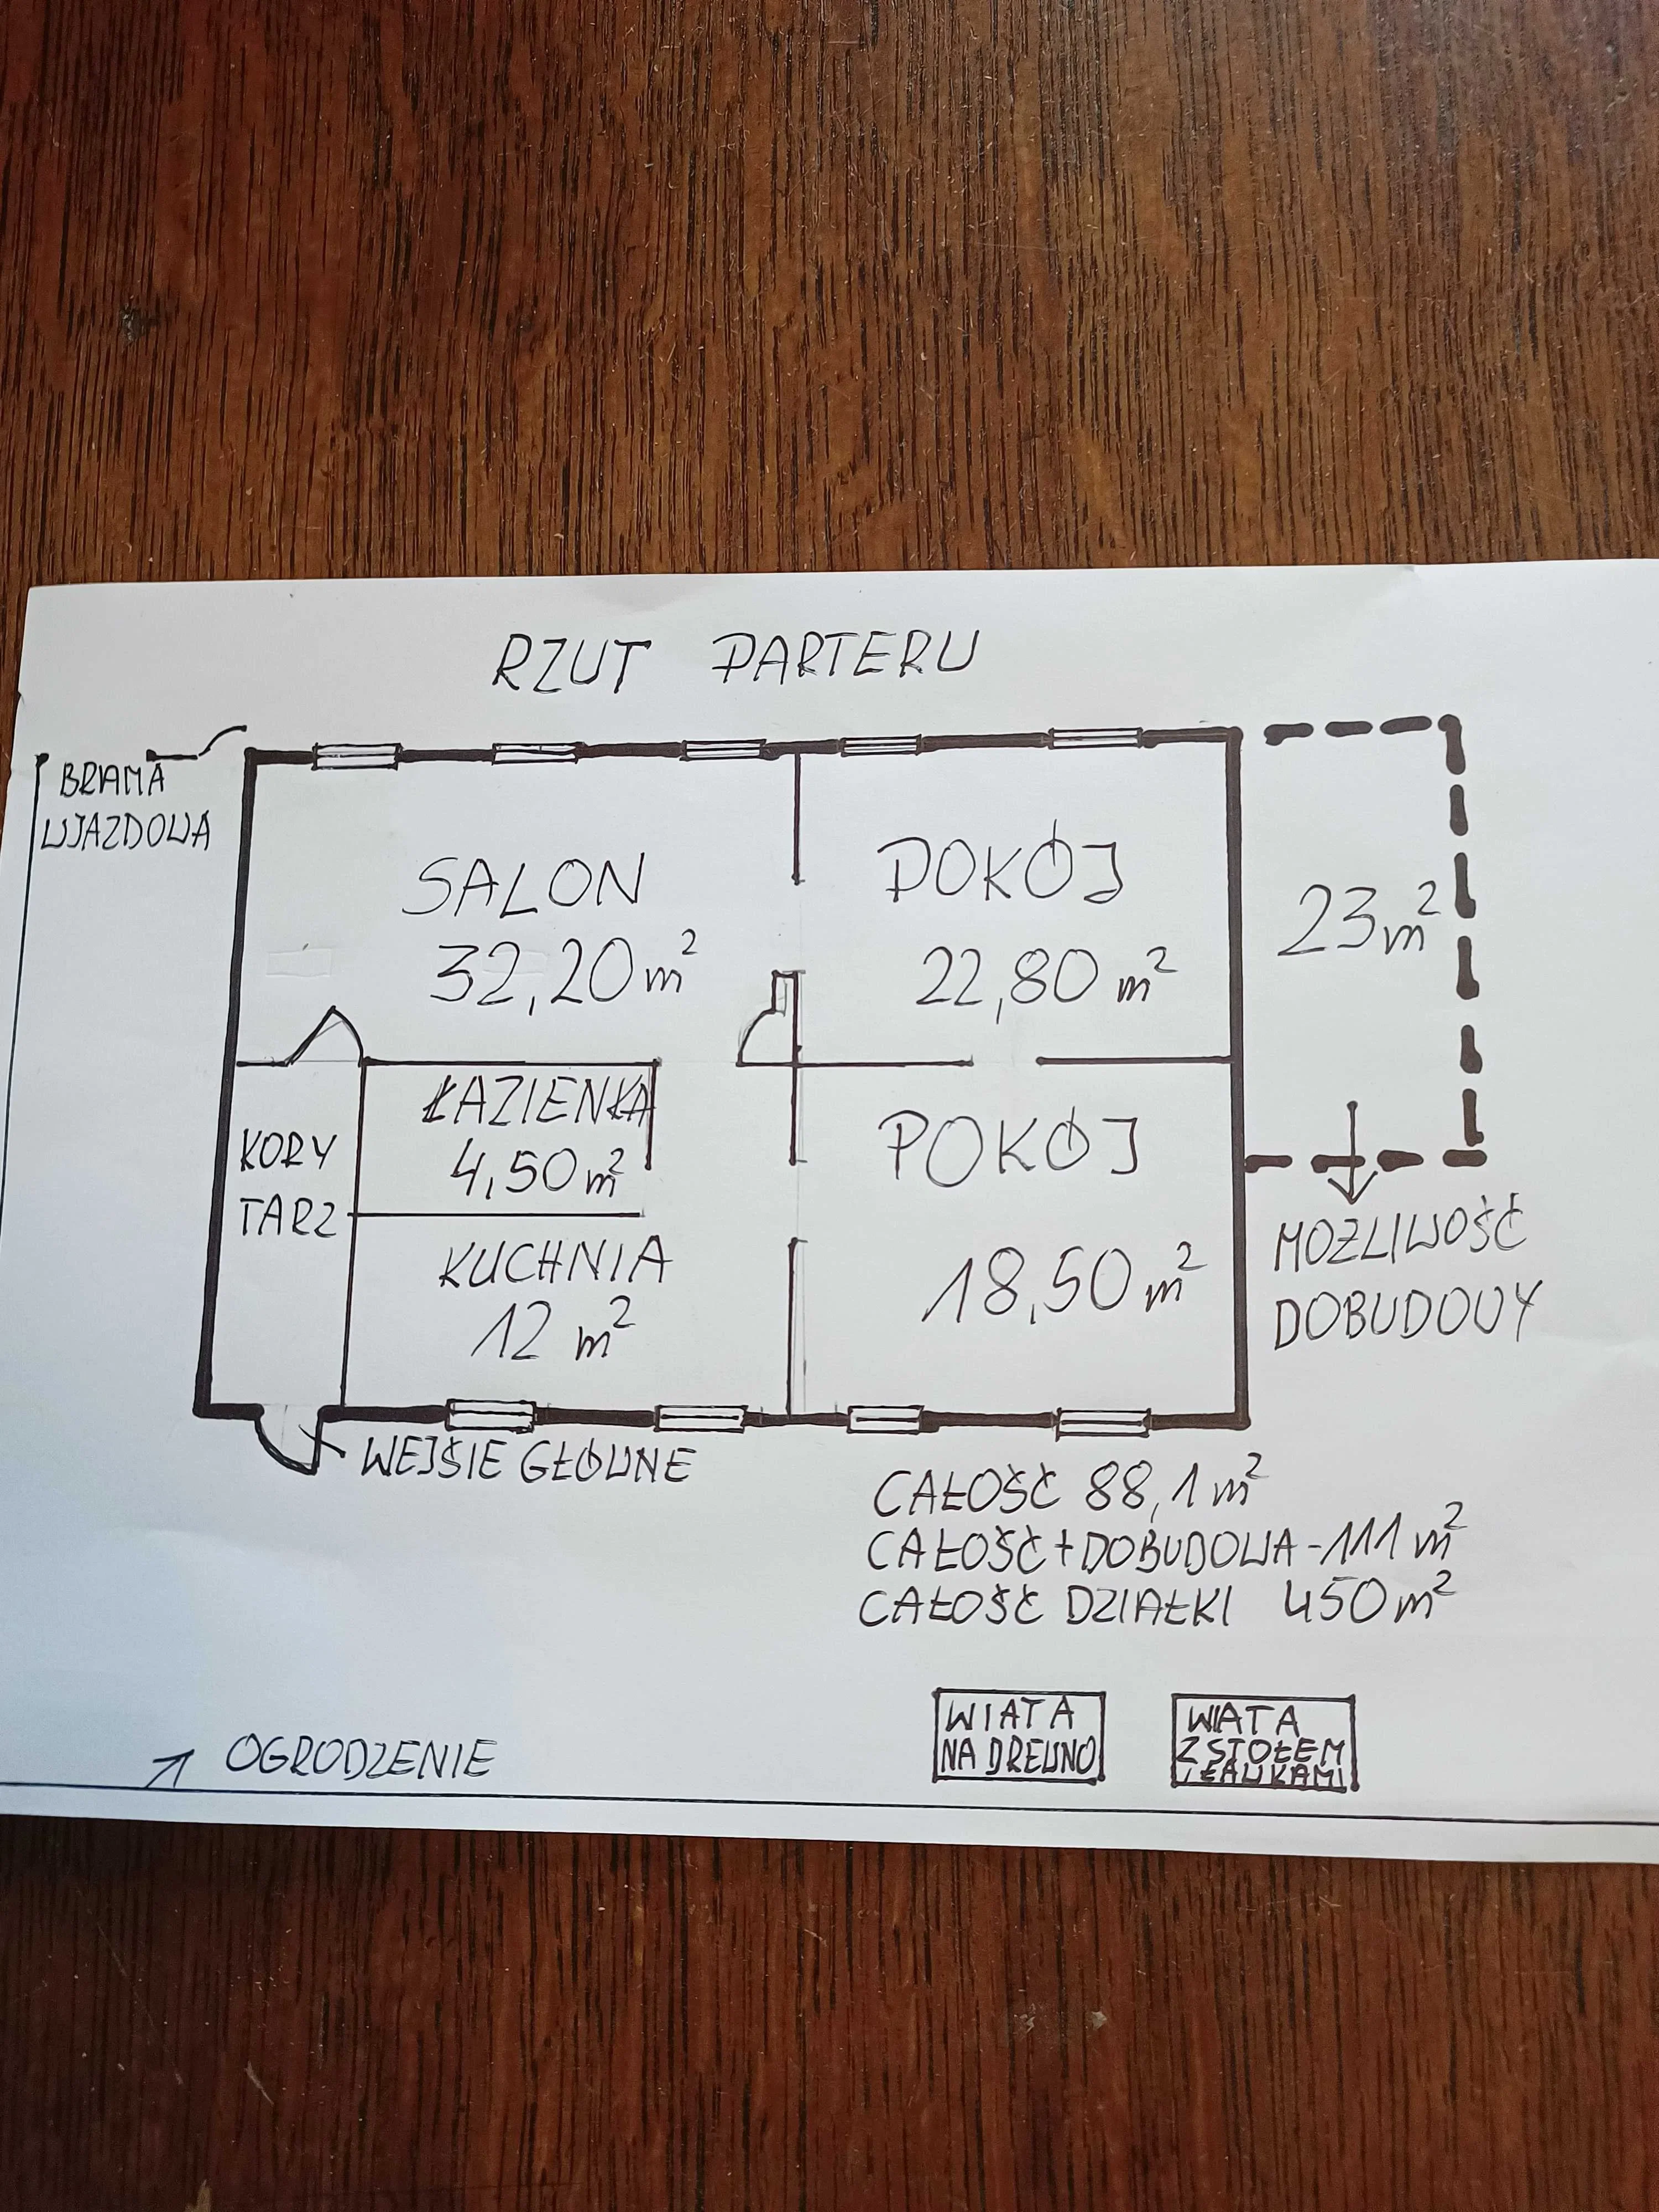 RZUT PARTERU
BRAMA
WJAZDOWA
SALON
32,20 m²
POKÓJ
22,80 m²
23 m²
ŁAZIENKA
4,50 m²
KORY
TARZ
POKÓJ
18,50 m²
KUCHNIA
12 m²
MOŻLIWOŚĆ
DOBUDOWY
WEJŚIE GŁÓWNE
CAŁOŚĆ 88,1 m²
CAŁOŚĆ + DOBUDOWA - 111 m²
CAŁOŚĆ DZIAŁKI 450 m²
WIATA
NA DREWNO
WIATA
Z STOŁEM
I ŁAWKAMI
OGRODZENIE